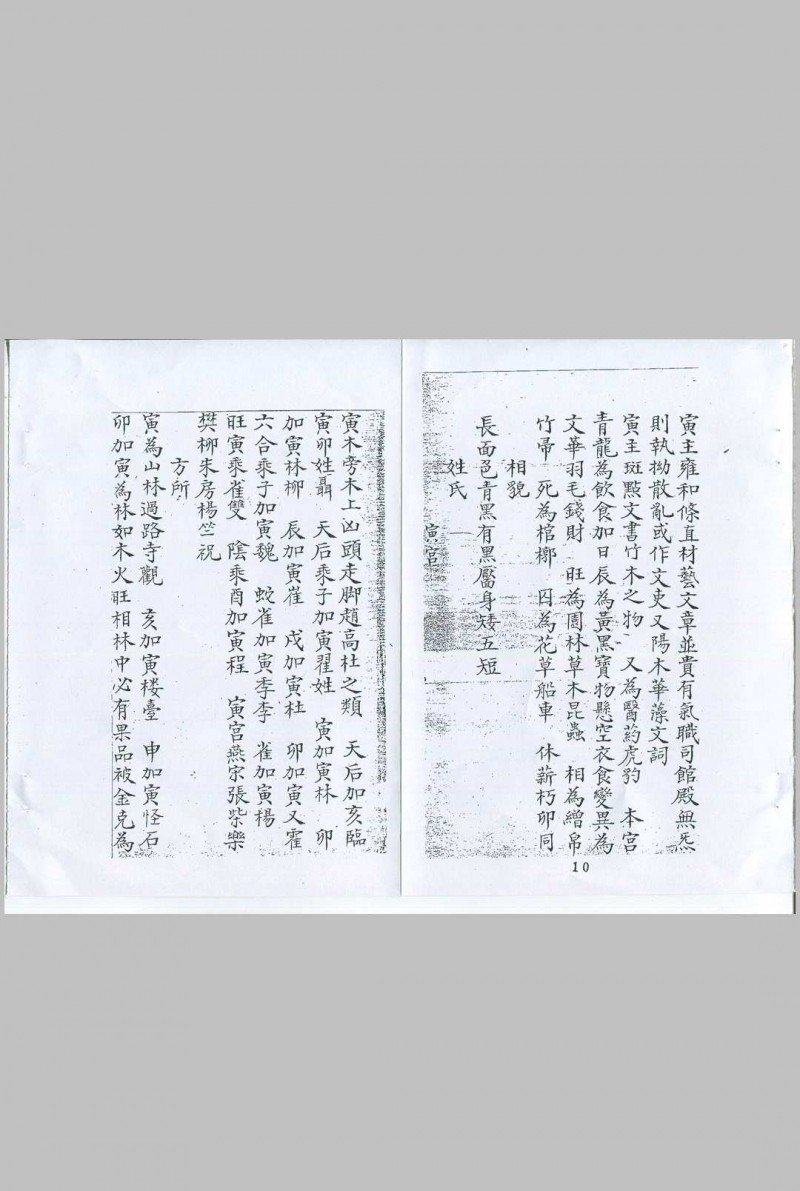 寅主雍和條直材藝文章並貴有氣職司館殿無炁
則執拗散亂或作文吏又陽木華藻文詞
寅主斑點文書竹木之物 又為醫葯虎豹 本宮
青龍為飲食加日辰為黃黑寶物懸空衣食變異為
文華羽毛錢財 旺為園林草木昆蟲 相為繒帛
竹帚 死為棺槨 囚為花草船車 休薪朽卯同
相貌
長面色青黑有黑靨身矮五短
姓氏
寅宮
10
寅木旁木上凶頭走脚趙高杜之類 天后加亥臨
寅卯姓聶 天后乘子加寅翟姓 寅加寅林 卯
加寅林柳 辰加寅崔 戌加寅杜 卯加寅又霍
六合乘子加寅魏 蛇雀加寅季李 雀加寅楊
旺寅乘雀雙 陰乘酉加寅程 寅宮燕宋張柴樂
樊柳朱房楊竺祝
方所
寅為山林過路寺觀 亥加寅楼臺 申加寅怪石
卯加寅為林如木火旺相林中必有果品被金克為